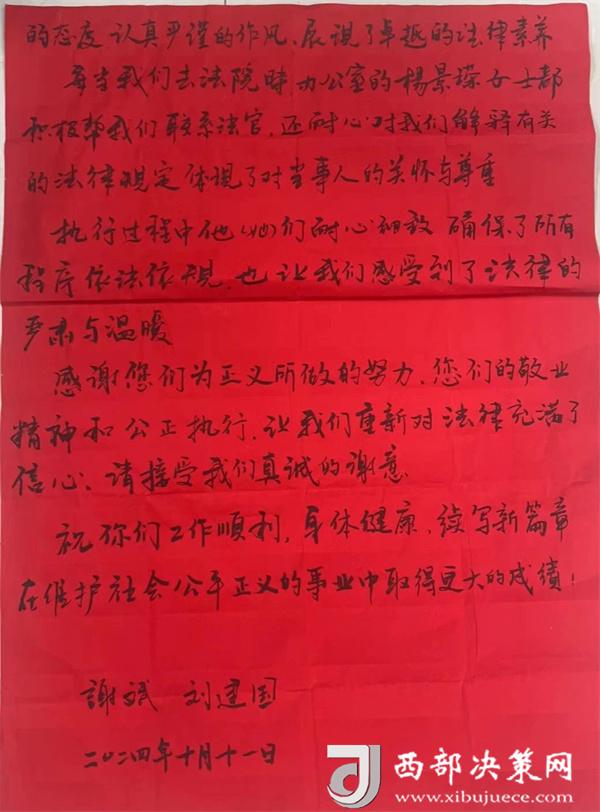 的态度认真严谨的作风、展现了卓越的法律素养
每当我们去法院时办公室的杨景琛女士都
积极帮我们联系法官,还耐心对我们解释有关
的法律规定体现了对当事人的关怀与尊重
执行过程中他(她)们耐心细致 确保了所有
程序依法依规,也让我们感受到了法律的
严肃与温暖
感谢您们为正义所做的努力,您们的敬业
精神和公正执行,让我们重新对法律充满了
信心、请接受我们真诚的谢意
祝你们工作顺利,身体健康,续写新篇章
在维护社会公平正义的事业中取得更大的成绩!
謝斌 刘建国
二〇二四年十月十一日
西部决策网
www.xibujuece.com